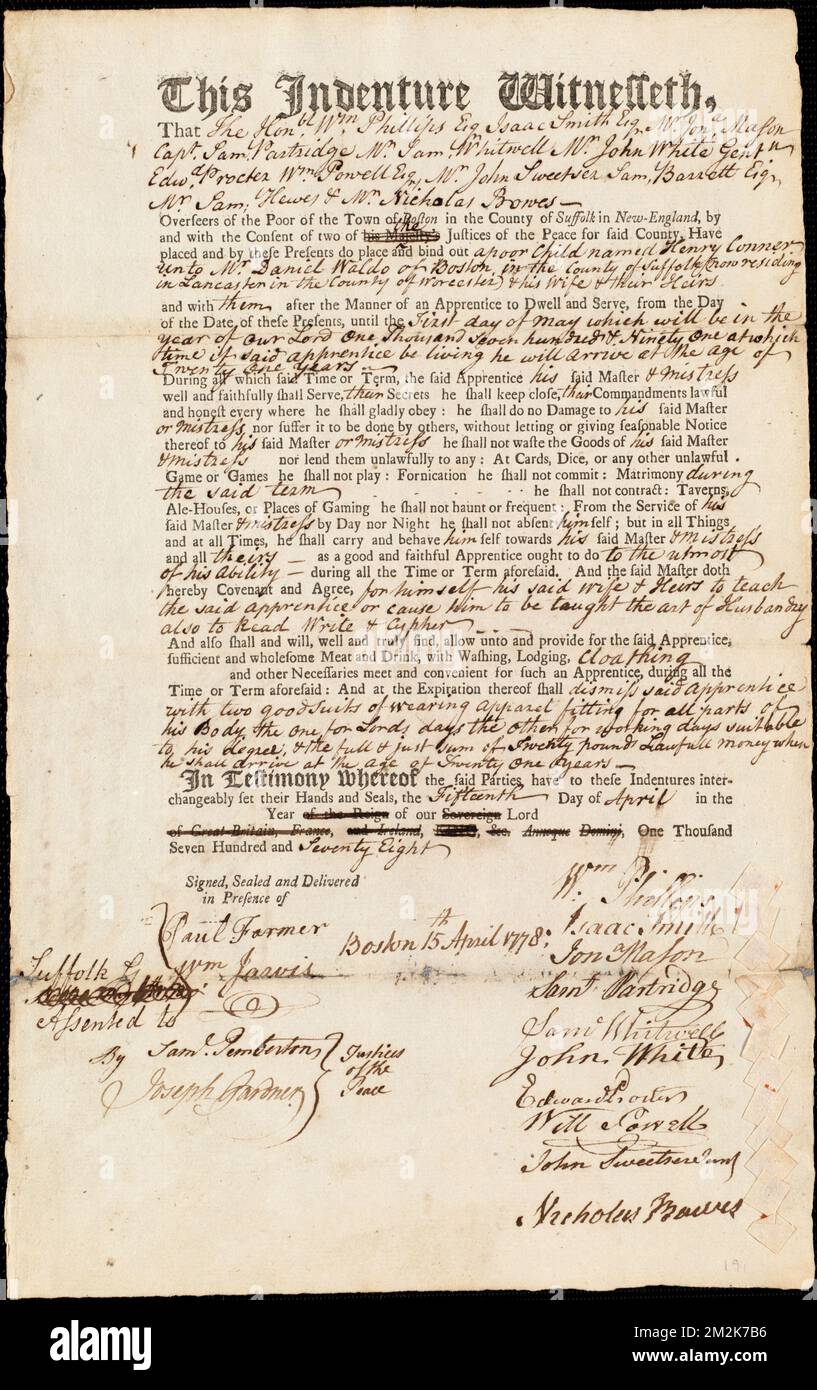 This Indenture Witnesseth,
That The Honble Wm Phillips Esq Isaac Smith Esqr Mr Jona Mason
Capt. Sam. Partridge Mr Sam. Whitwell Mr John White Gentn
Edwd. Procter Wm Powell Esq, Mr John Sweetser Sam. Barrett Esq,
Mr Sam. Hewes & Mr Nicholas Bowes
Overseers of the Poor of the Town of Boston in the County of Suffolk in New-England, by
the
and with the Consent of two of his Majesty's Justices of the Peace for said County, Have
placed and by these Presents do place and bind out a poor Child named Henry Conner
unto Mr Daniel Waldo of Boston, in the County of Suffolk (now residing
in Lancaster in the County of Worcester) & his Wife & their Heirs
and with them after the Manner of an Apprentice to Dwell and Serve, from the Day
of the Date of these Presents, until the First day of May which will be in the
year of our Lord One Thousand seven hundred & Ninety One at which
time if said apprentice be living he will arrive at the age of
Twenty One years
During all which said Time or Term, the said Apprentice his said Master & Mistress
well and faithfully shall Serve, their Secrets he shall keep close, their Commandments lawful
and honest every where he shall gladly obey: he shall do no Damage to his said Master
or Mistress nor suffer it to be done by others, without letting or giving seasonable Notice
thereof to his said Master or Mistress he shall not waste the Goods of his said Master
& Mistress nor lend them unlawfully to any: At Cards, Dice, or any other unlawful
Game or Games he shall not play: Fornication he shall not commit: Matrimony during
the said term he shall not contract: Taverns,
Ale-Houses, or Places of Gaming he shall not haunt or frequent: From the Service of his
said Master & mistress by Day nor Night he shall not absent himself; but in all Things
and at all Times, he shall carry and behave himself towards his said Master & Mistress
and all theirs as a good and faithful Apprentice ought to do to the utmost
of his Ability during all the Time or Term aforesaid. And the said Master doth
hereby Covenant and Agree, for himself his said wife & Heirs to teach
the said apprentice or cause him to be taught the art of Husbandry
also to Read Write & Cypher
And also shall and will, well and truly find, allow unto and provide for the said Apprentice,
sufficient and wholesome Meat and Drink, with Washing, Lodging, Cloathing
and other Necessaries meet and convenient for such an Apprentice, during all the
Time or Term aforesaid: And at the Expiration thereof shall dismiss said Apprentice
with two good suits of wearing Apparel fitting for all parts of
his Body, the one for Lords days the other for working days suitable
to his degree, & the full & just sum of Twenty pounds Lawfull money when
he shall arrive at the age of Twenty One years
In Testimony whereof the said Parties have to these Indentures inter-
changeably set their Hands and Seals, the Fifteenth Day of April in the
Year of the Reign of our Sovereign Lord
of Great-Britain, France, and Ireland, &c. Annoque Domini, One Thousand
Seven Hundred and Seventy Eight
Signed, Sealed and Delivered
in Presence of
Paul Farmer
Wm Jarvis
Boston 15th April 1778:
Suffolk
Assented to
By Saml. Pemberton
Joseph Gardner
Justices
of the
Peace
Wm Phillips
Isaac Smith
Jona Mason
Saml Partridge
Saml Whitwell
John White
Edward Procter
Will Powell
John Sweetser Junr
Nicholas Bowes
191
alamy
Image ID: 2M2K7B6
www.alamy.com